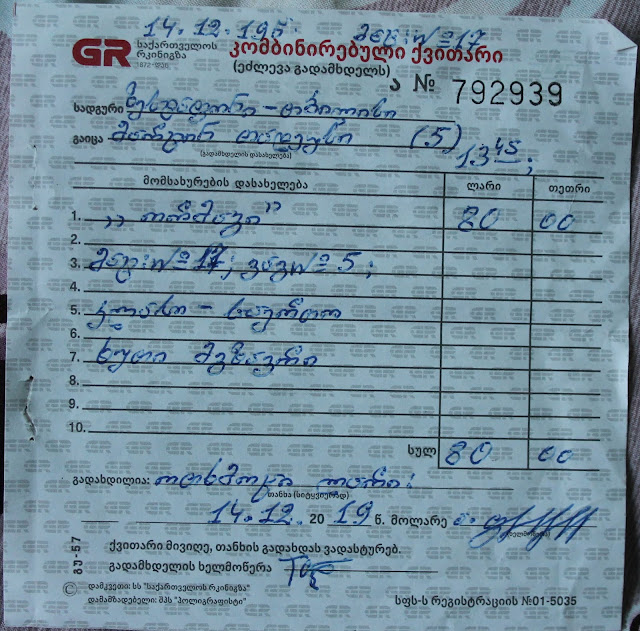 14.12.195. მატ:№17
GR საქართველოს რკინიგზა 1872-დან
კომბინირებული ქვითარი
(ეძლევა გადამხდელს)
ა № 792939
სადგური ზესტაფონი - თბილისი
გაიცა (5)
(გადამხდელის დასახელება)
13 45;
მომსახურების დასახელება ლარი თეთრი
1. 80 00
2.
3. მატ:№17; ვაგ№5;
4.
5. კლასი - საერთო
6.
7. ხუთი მგზავრი
8.
9.
10.
სულ 80 00
გადახდილია: ოთხმოცი ლარი.
თანხა (სიტყვიერად)
14.12. 2019 წ. მოლარე
ქვითარი მივიღე, თანხის გადახდას ვადასტურებ.
გადამხდელის ხელმოწერა
გუ-57
© დამკვეთი: სს "საქართველოს რკინიგზა"
დამამზადებელი: შპს "პოლიგრაფისტი"
სფს-ს რეგისტრაციის №01-5035